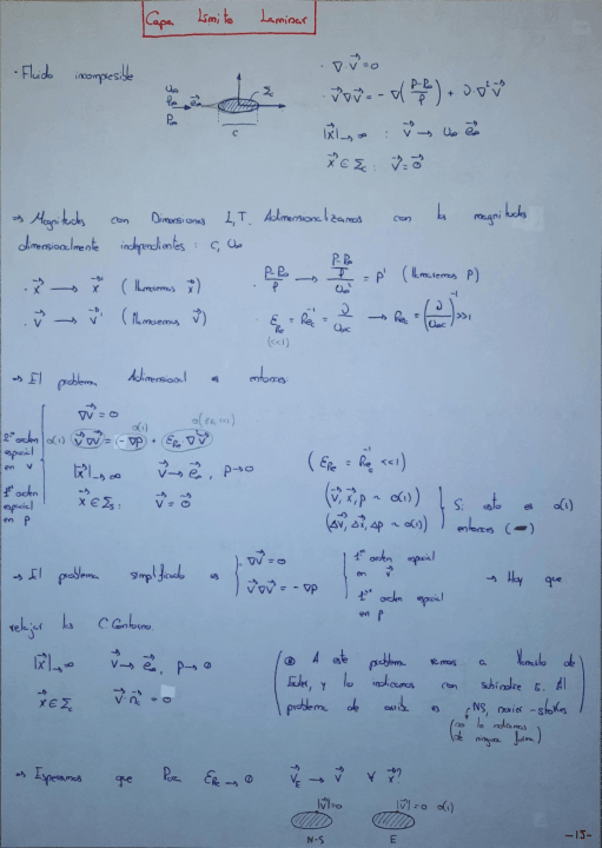 Capa Límite Laminar
· Fluido incompresible
· ∇·v⃗ = 0
U∞
P∞
e⃗∞
Σc
c
· v⃗∇v⃗ = -∇((P-P∞)/ρ) + ν·∇²v⃗
|x⃗|→∞ : v⃗ → U∞ e⃗∞
x⃗ ∈ Σc : v⃗ = 0⃗
⇒ Magnitudes con Dimensiones L,T. Adimensionalizamos con las magnitudes
dimensionalmente independientes : c, U∞
· x⃗ → x⃗' (llamaremos x⃗)
· (P-P∞)/ρ → = P' (llamaremos P)
· v⃗ → v⃗' (llamaremos v⃗)
· εRe = Rec⁻¹ = ν/U∞c → Rec = (ν/U∞c)⁻¹ >>1
(<<1)
⇒ El problema Adimensional es entonces:
∇v⃗ = 0
o(1) v⃗∇v⃗ = -∇p + εRe ∇²v⃗
o(1)
2º orden espacial en v
1er orden espacial en p
|x⃗|→∞ v⃗ → e⃗∞, p→0
x⃗ ∈ Σs: v⃗ = 0⃗
(εRe = Rec⁻¹ <<1)
(v⃗, x⃗, p ~ o(1))
(Δv⃗, Δx⃗, Δp ~ o(1))
Si esto es o(1)
entonces
⇒ El problema simplificado es
∇v⃗ = 0
v⃗∇v⃗ = -∇p
1er orden espacial en v⃗
1er orden espacial en p
→ Hay que
relajar las C.Contorno.
|x⃗|→∞ v⃗ → e⃗∞, p→0
x⃗ ∈ Σc v⃗ n⃗c = 0
A este problema vamos a llamarlo de
Euler, y lo indicamos con subíndice E. Al
problema de es NS, navier-stokes
(no lo indicamos
de ninguna forma)
⇒ Esperamos que Para εRe → 0 v⃗E → v⃗ ∀ x⃗?
|v⃗|=0
|v⃗|=0 o(1)
N-S
E
-15-